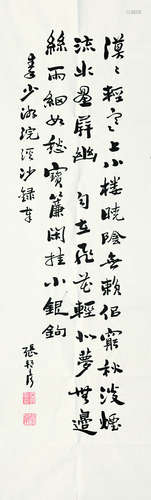 漠〻輕寒上小樓曉陰無賴似窮秋淡煙
流水畫屏幽　自在飛花輕似夢無邊
絲雨細如愁寶簾閑挂小銀鉤
秦少游浣溪沙錄奉